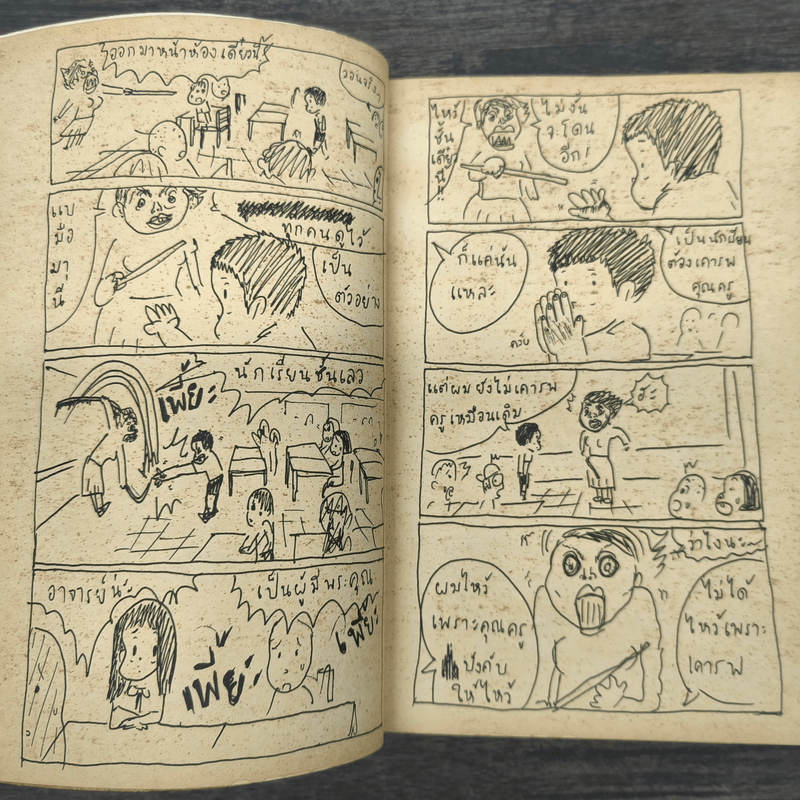 ออกมาหน้าห้องเดี๋ยวนี้
แบ
มือ
มา
นี่
ทุกคนดูไว้
เป็น
ตัวอย่าง
นักเรียนชั้นเลว
เพี๊ยะ
อาจารย์น่ะ
เป็นผู้มีพระคุณ
เพี๊ยะ
เพี๊ยะ
ไหว้
ชั้น
เดี๋ยว
นี้!!
ไม่งั้น
จะโดน
อีก!
ก็แค่นั้น
แหละ
เป็นนักเรียน
ต้องเคารพ
คุณครู
แต่ผมยังไม่เคารพ
ครูเหมือนเดิม
ฮะ
ว่าไงนะ
ผมไหว้
เพราะคุณครู
บังคับ
ให้ไหว้
ไม่ได้
ไหว้เพราะ
เคารพ